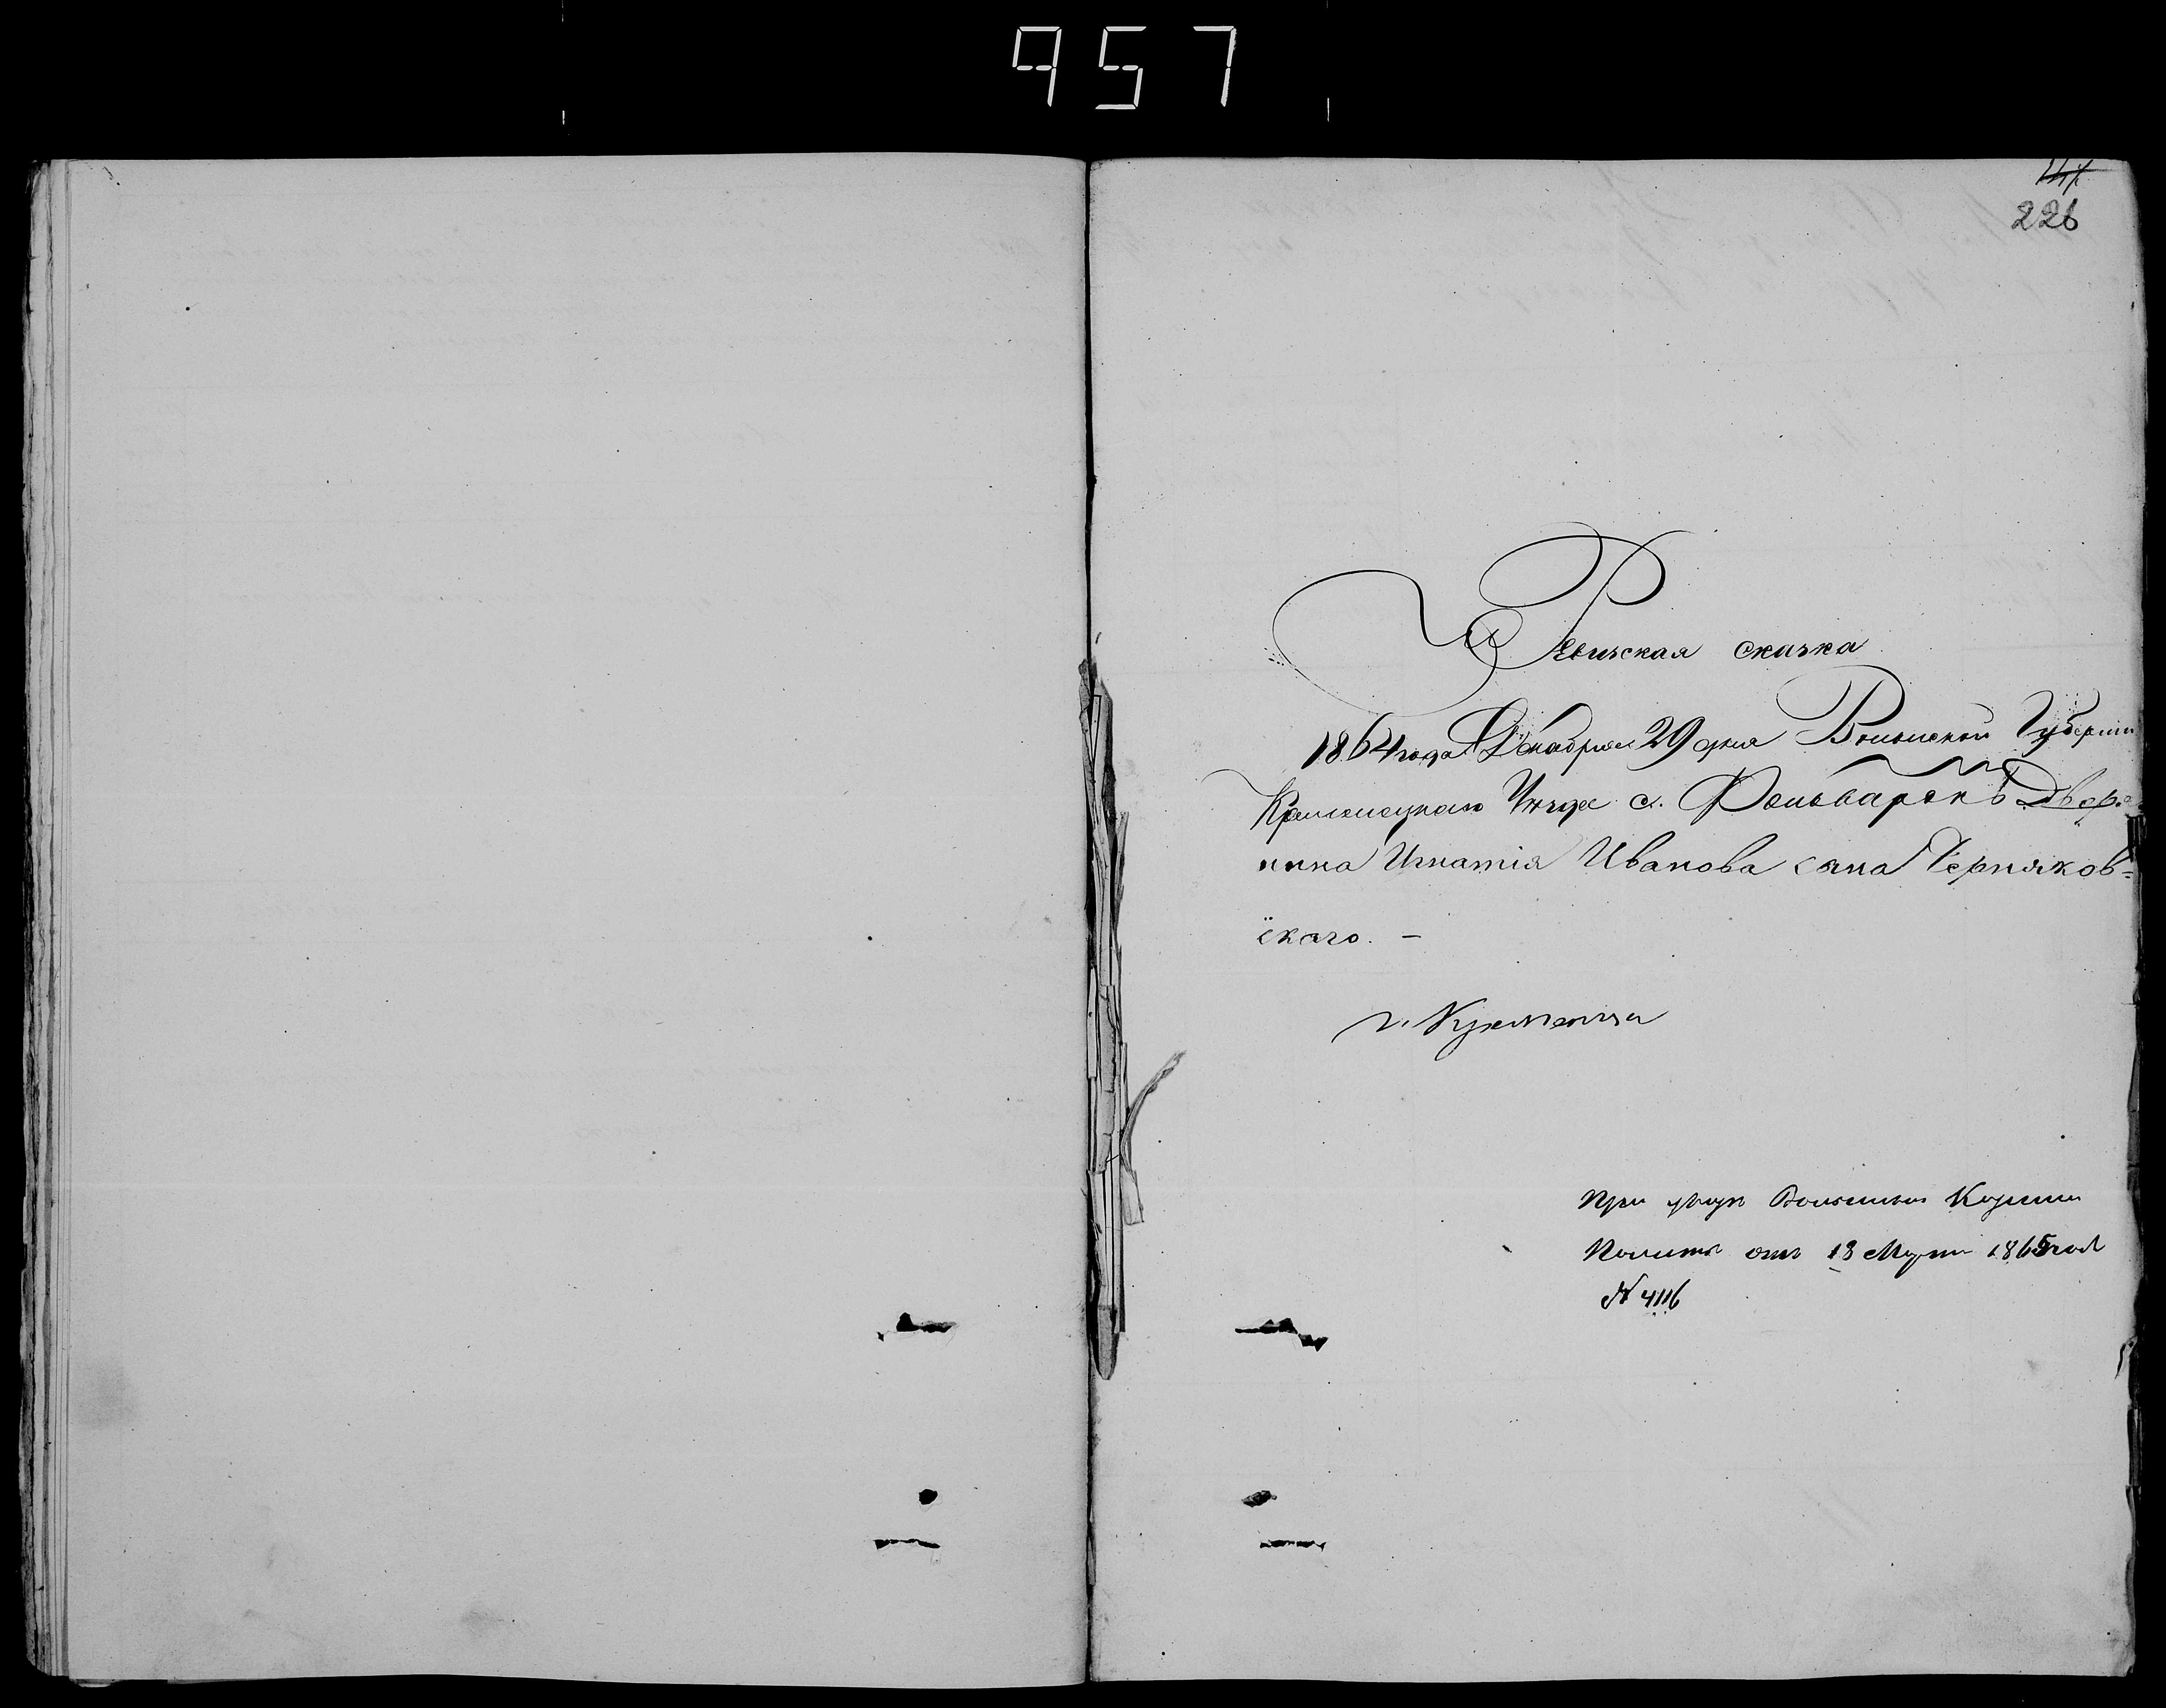 957
226
Ревизская сказка
1864 года Декабря 29 дня Волынской Губернии
Кременецкаго Уезда с. Фольварокъ Дворя
нина Игнатія Иванова сына Черняков=
скаго. –
г. Кременца
При указе Волынской Казенной
Палаты отъ 13 Марта 1865 года
№ 4116